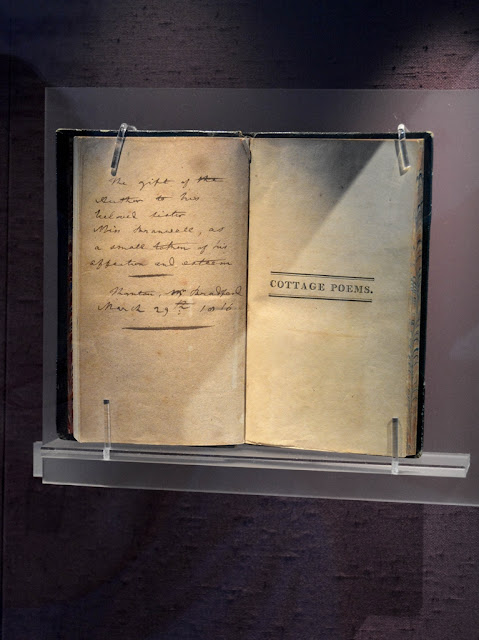 The gift of the
Author to his
beloved sister
Miss Branwell, as
a small token of his
affection and esteem
Thornton, Bradford
March 29th 1816
COTTAGE POEMS.